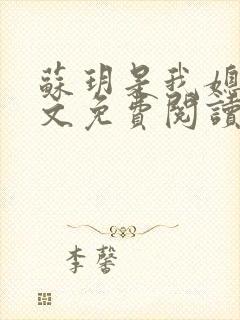 蘇玥是我媳
文免費閱讀
李馨